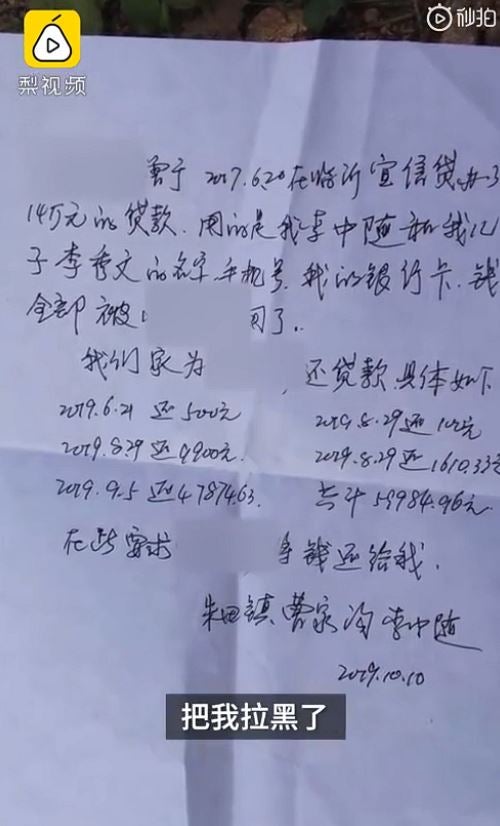 秒拍
梨视频
曾于2017.6.20在临沂宜信贷办了
14万元的贷款.用的是我李中随和我儿
子李秀文的名字.手机号.我的银行卡.钱
全部被 用了.
我们家为 ,还贷款.具体如下
2019.6.21还500元 2019.8.29还100元
2019.8.29还9900元. 2019.8.29还1610.33元
2019.9.5还47874.63. 共计59984.96元.
在此要求 钱还给我.
朱田镇 曹家沟 李中随
2019.10.10
把我拉黑了